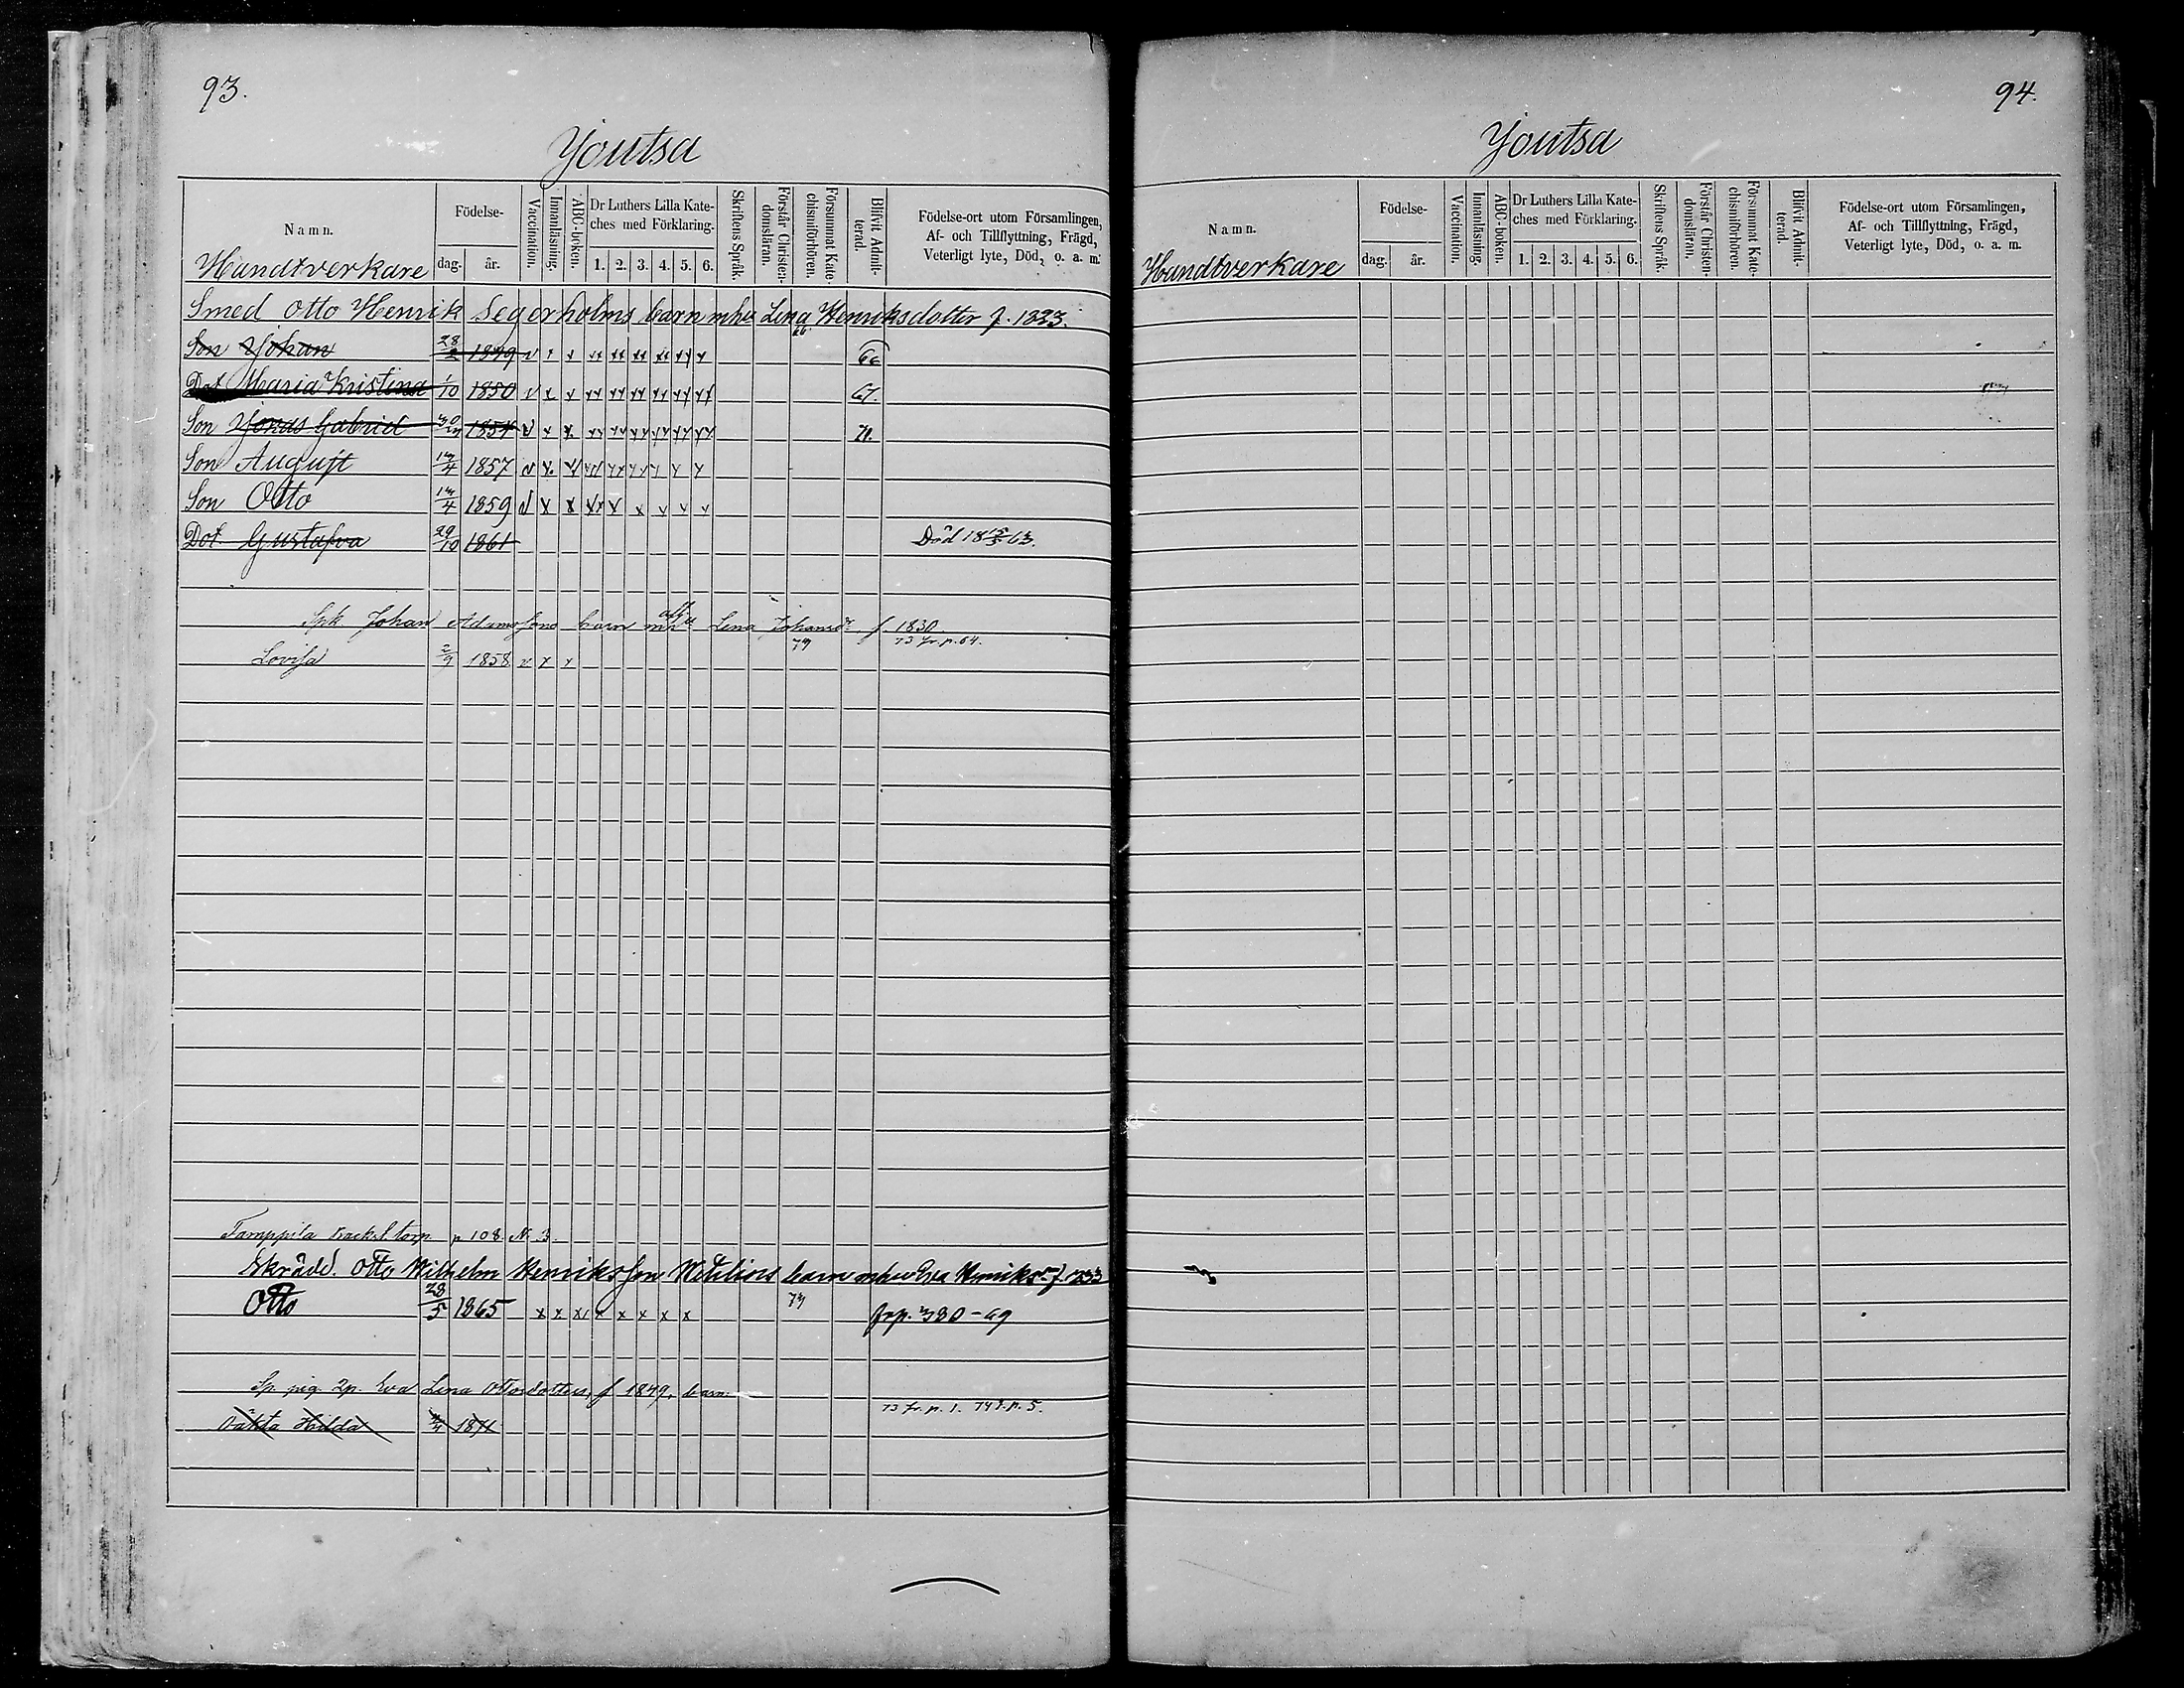 93.
Joutsa
Namn.
Födelse-
dag.
år.
Vaccination.
Innanläsning.
ABC-boken.
Dr Luthers Lilla Kate-
ches med Förklaring.
1. 2. 3. 4. 5. 6.
Skriftens Språk.
Förstår Christen-
domsläran.
Försummat Kate-
chismiförhören.
Blifvit Admit-
terad.
Födelse-ort utom Församlingen,
Af- och Tillflyttning, Frägd,
Veterligt lyte, Död, o. a. m.
Handtverkare
Smed Otto Henrik Segerholms barn mhu Lena Henriksdotter f. 1823.
Son Johan 28/2 1849 v x x xx xx xx xx xx x 66
Dot Maria Kristina 1/10 1850 v x x xx xx xx xx xx xx 67.
Son Jonas Gabriel 1854 v x x xx xx xx xx xx xx 71.
Son August 1857
Son Otto 1859
Dot Gustafva 29/10 1861 Död 18 63.
Spk Johan Adamssons barn Lena Johansdr f 1830
73 fr. p. 64.
Lovisa 2/9 1858 v x x
p 108 N. 3.
Skrädd. Otto Wilhelm Henriksson barn mhu Eva Henriksdr f. 1833
Otto 28/5 1865 x x x x x x x x 73 frp. 380-69
Sp. pig. Eva Lena Ottosdotters, f 1849, barn:
73 fr. p. 1. 74 t. p. 5.
Oäkta Hilda 1871
94.
Joutsa
Namn.
Födelse-
dag.
år.
Vaccination.
Innanläsning.
ABC-boken.
Dr Luthers Lilla Kate-
ches med Förklaring.
1. 2. 3. 4. 5. 6.
Skriftens Språk.
Förstår Christen-
domsläran.
Försummat Kate-
chismiförhören.
Blifvit Admit-
terad.
Födelse-ort utom Församlingen,
Af- och Tillflyttning, Frägd,
Veterligt lyte, Död, o. a. m.
Handtverkare